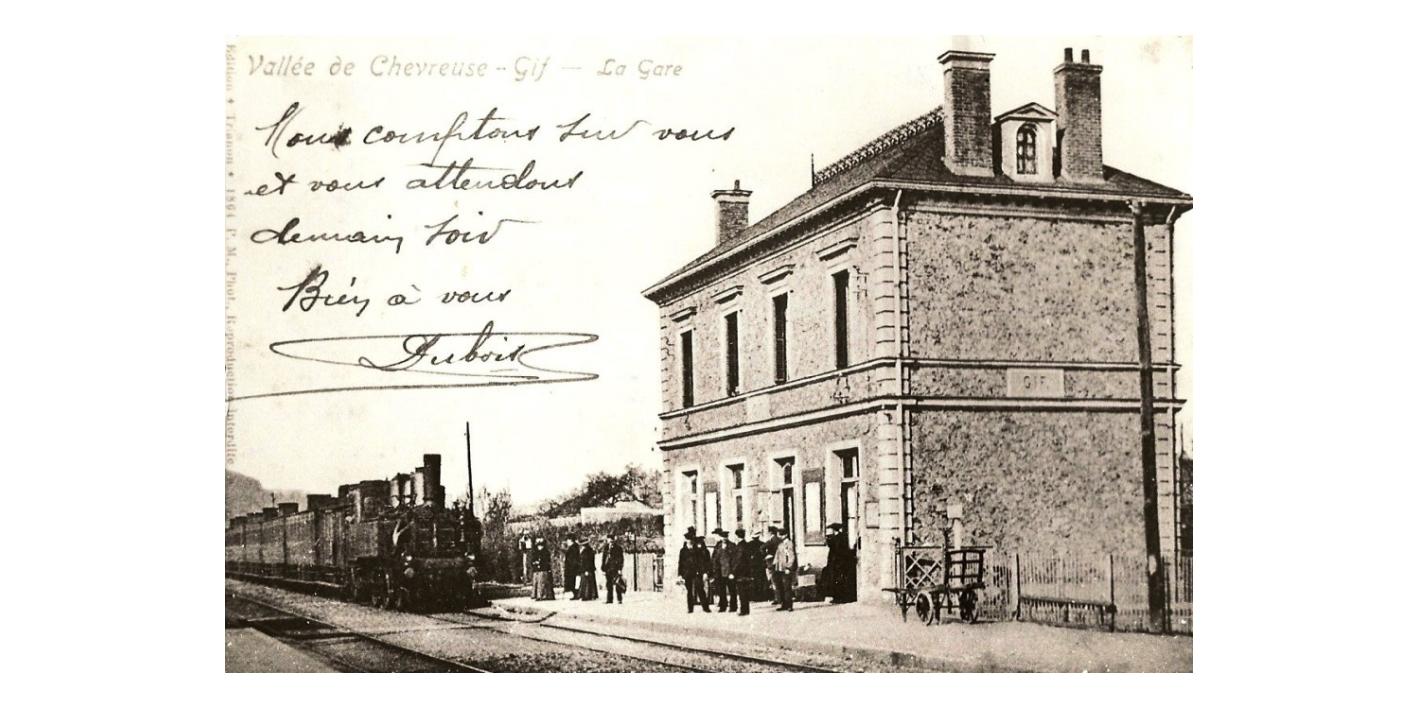 Vallée de Chevreuse - Gif — La Gare
Nous comptons sur vous
et vous attendons
demain soir
Bien à vous
Dubois
GIF
Edition * Trianon * 1894 P. M., Phot. Reproduction interdite